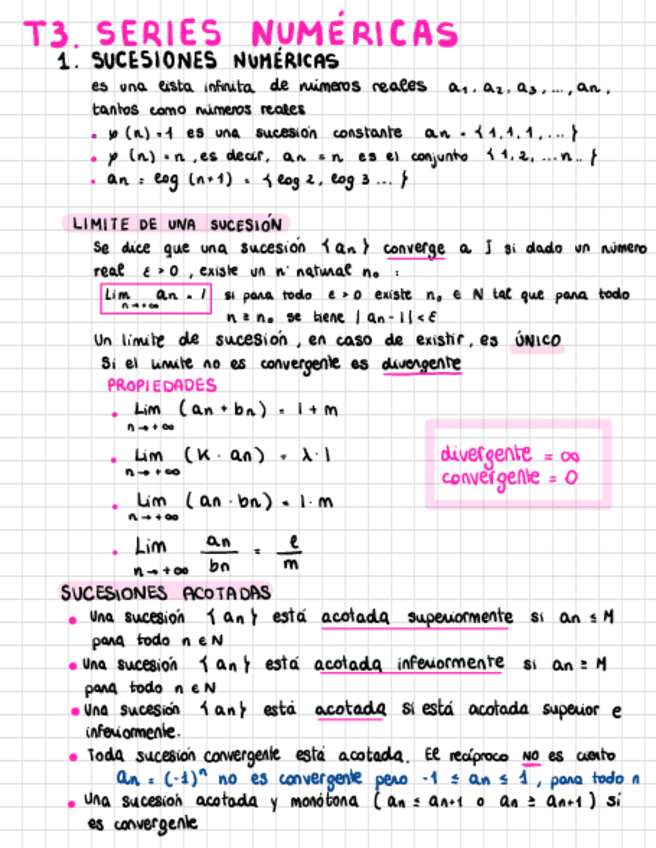 T3. SERIES NUMÉRICAS
1. SUCESIONES NUMÉRICAS
es una lista infinita de números reales a1, a2, a3, ..., an,
tantos como números reales
• φ(n)=1 es una sucesión constante an = {1,1,1,...}
• φ(n)=n, es decir, an = n es el conjunto {1,2,...n..}
• an = log (n+1) = {log 2, log 3 ...}
LIMITE DE UNA SUCESIÓN
Se dice que una sucesión {an} converge a I si dado un número
real ε>0, existe un n° natural n₀ :
Lim an = l si para todo ε>0 existe n₀ ∈ N tal que para todo
n→+∞
n ≥ n₀ se tiene |an-l|<ε
Un límite de sucesión, en caso de existir, es ÚNICO
Si el limite no es convergente es divergente
PROPIEDADES
• Lim (an + bn) = l + m
n→+∞
• Lim (K · an) = λ·l
n→+∞
divergente = ∞
convergente = 0
• Lim (an · bn) = l·m
n→+∞
• Lim an/bn = l/m
n→+∞
SUCESIONES ACOTADAS
• Una sucesión {an} está acotada superiormente si an ≤ M
para todo n ∈ N
• Una sucesión {an} está acotada inferiormente si an ≥ M
para todo n ∈ N
• Una sucesión {an} está acotada si está acotada superior e
inferiormente.
• Toda sucesión convergente está acotada. El recíproco NO es cierto
an = (-1)ⁿ no es convergente pero -1 ≤ an ≤ 1, para todo n
• Una sucesión acotada y monótona (an ≤ an+1 o an ≥ an+1) sí
es convergente